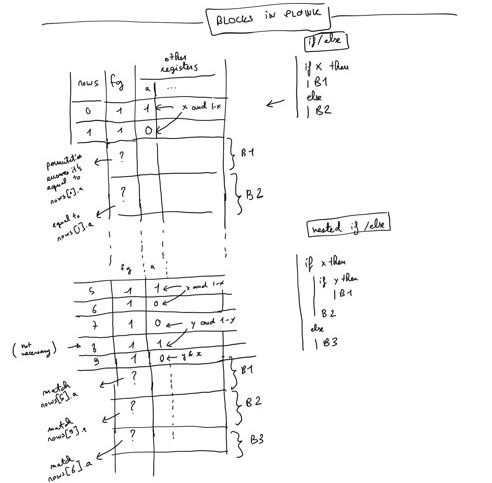 BLOCKS IN PLONK
if/else
if x then
B1
else
B2
other
registers
rows fg a ...
0 1 1 x and 1-x
1 1 0
? B1
permutation
ensures it's
equal to
rows[0].a
? B2
equal to
rows[1].a
nested if/else
if x then
if y then
B1
B2
else
B3
fg a
5 1 1 x and 1-x
6 1 0
7 1 0 y and 1-y
(not
necessary) 8 1 1
9 1 0 y & x
? B1
match
rows[5].a
? B2
match
rows[9].
? B3
match
rows[6].a